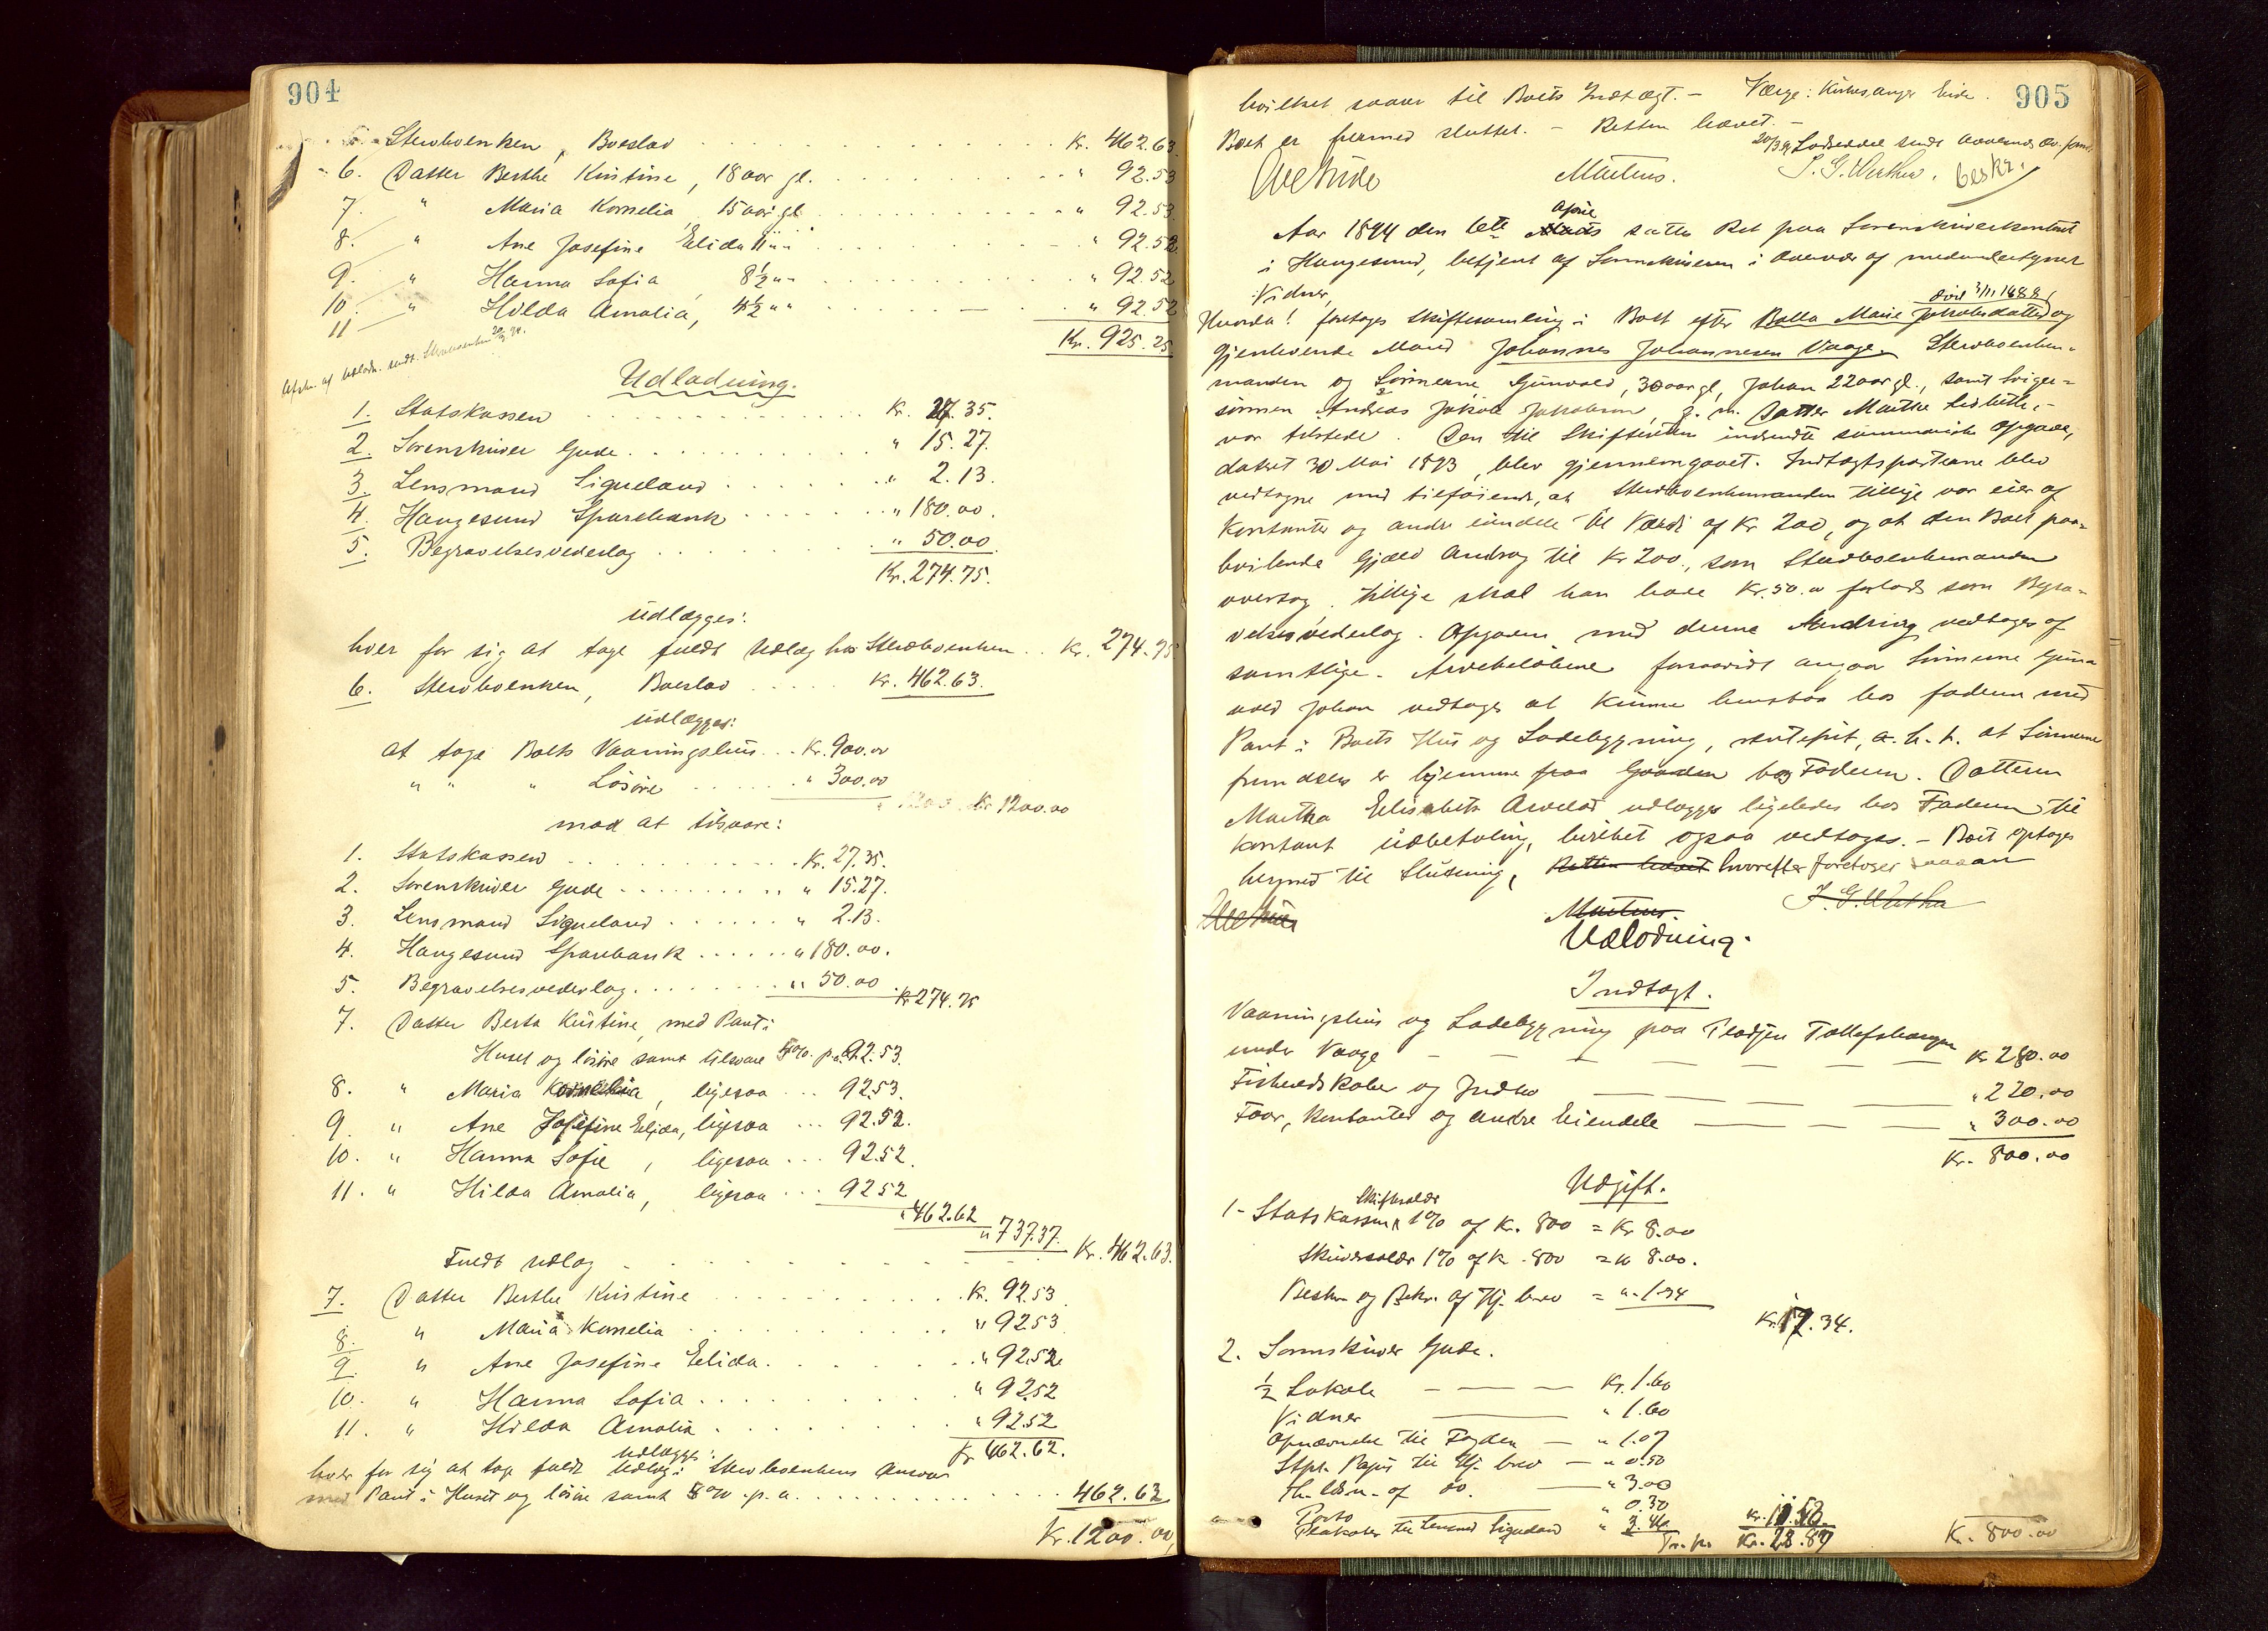 904
5. Stervboenken, Boeslod . . . Kr. 462.63
6. Datter Berthe Kristine, 18 aar gl. . . . " 92.53
7. " Maria Kornelia, 15 aar gl. . . . " 92.53
8. " Ane Josefine Elida 11 " " . . . " 92.52
9. " Hanna Sofia, 8½ " " . . . " 92.52
10. " Hilda Amalia, 4½ " " . . . " 92.52
11
Kr. 925.25
Udlodning.
1. Statskassen . . . Kr. 27.35.
2. Sorenskriver Gude . . . " 15.27.
3. Lensmand Sigueland . . . " 2.13.
4. Haugesund Sparebank . . . " 180.00.
5. Begravelsesvederlag . . . " 50.00.
Kr. 274.75.
udlægges:
hver for sig at tage fuldt Udlæg hos Stervboenken . . Kr. 274.75
6. Stervboenken, Boeslod . . . Kr. 462.63.
udlægges:
at tage Boets Vaaningshus . . . Kr. 900.00
" " " Løsøre . . . " 300.00
Kr 1200.00
mod at tilsvare:
1. Statskassen . . . Kr. 27.35.
2. Sorenskriver Gude . . . " 15.27.
3. Lensmand Sigueland . . . " 2.13.
4. Haugesund Sparebank . . . " 180.00.
5. Begravelsesvederlag . . . " 50.00
Kr 274.75
7. Datter Berta Kristine, med Pant i
Huset og løsøre samt tilsvare 5% p.a. 92.53.
8. " Maria Kornelia, ligesaa . . . 92.53.
9. " Ane Josefine Elida, ligesaa . . . 92.52.
10. " Hanna Sofie, ligesaa . . . 92.52.
11. " Hilda Amalia, ligesaa . . . 92.52
" 462.62
" 737.37.
Kr. 462.63.
Fuldt Udlæg
7. Datter Berthe Kristine . . . Kr. 92.53
8. " Maria Kornelia . . . " 92.53
9. " Ane Josefine Elida . . . " 92.52
10. " Hanna Sofia . . . " 92.52
11. " Hilda Amalia . . . " 92.52
Kr 462.62.
udlægges:
hver for sig at tage fuldt Udlæg i Stervboenkens Ansvar
med Pant i Huset og løsøre samt 5% p.a. . . . 462.62
Kr. 1200.00,
905
hvilket svarer til Boets Indtægt. - Værge: Kirkesanger Eide.
Boet er hermed sluttet. - Retten hævet. -
Martens.
beskr.
April
Aar 1894 den 6te Marts sattes Ret paa Sorenskriverkontoret
i Haugesund, betjent af Sorenskriveren i Overvær af medundertegnede
Vidner,
død 3/11 1688
Hvorda! foretoges Skiftesamling i Boet efter Malla Marie Jakobsdatter og
gjenlevende Mand Johannes Johannesen Vaage. Stervboenke-
manden og Sønnerne Gunvald, 30 aar gl., Johan 22 aar gl., samt Sviger-
sønnen Andreas Jakob Jakobsen, g. m. Datter Martha Lisbeth, -
var tilstede. Den til Skifteretten indsendte summariske Opgave,
dateret 30 Mai 1893, blev gjennemgaaet. Indtægtsposterne blev
vedtagne med tilføiende, at Stervboenkemanden tillige var eier af
Kontanter og andre eiendele til Værdi af Kr 200, og at den Boet paa-
hvilende Gjæld androg til Kr 200., som Stervboenkemanden
overtog. Tillige skal han have Kr. 50.00 forlods som Begra-
velsesvederlag. Opgaven med denne Ændring vedtoges af
samtlige. Arvebeløbene forsaavidt angaar Sønnerne Gun-
vald Johan vedtoges at kunne henstaa hos faderen med
Pant i Boets Hus og Ladebygning, rentefrit, a. h. t. at Sønnerne
fremdeles er hjemme paa Gaarden hos Faderen. Datteren
Martha Elisabeth Arvelod udlægges ligeledes hos Faderen til
kontant udbetaling, hvilket ogsaa vedtoges. - Boet optages
hermed til Slutning, Retten hævet hvorefter foretoges saadan
Martens.
Udlodning.
Indtægt.
Vaaningshus og Ladebygning paa Pladsen Tollefshaugen
under Vaage — Kr 280.00
Fiskeredskaber og Indbo — " 220.00
Faar, Kontanter og andre Eiendele — " 300.00
Kr. 800.00
Udgift.
Skiftesalær
1. Statskassen 1% af Kr. 800 = Kr 8.00
Skriversalær 1% af K. 800 = " 8.00.
Beskr. og Bekr. af Hj. brev = " 1.34
Kr. 17.34.
2. Sorenskriver Gude.
½ Lokale — Kr. 1.60
Vidner — " 1.60
Opnævnelse til Fogden — " 1.07
Stpl. Papir til Hj. brev — " 0.50
Th. læsn. af do. — " 3.00
Porto " 0.30
Plakater til Lensmd Sigueland " 3.46 Kr. 11.53.
Tr. pr. Kr. 28.87 K. 800.00